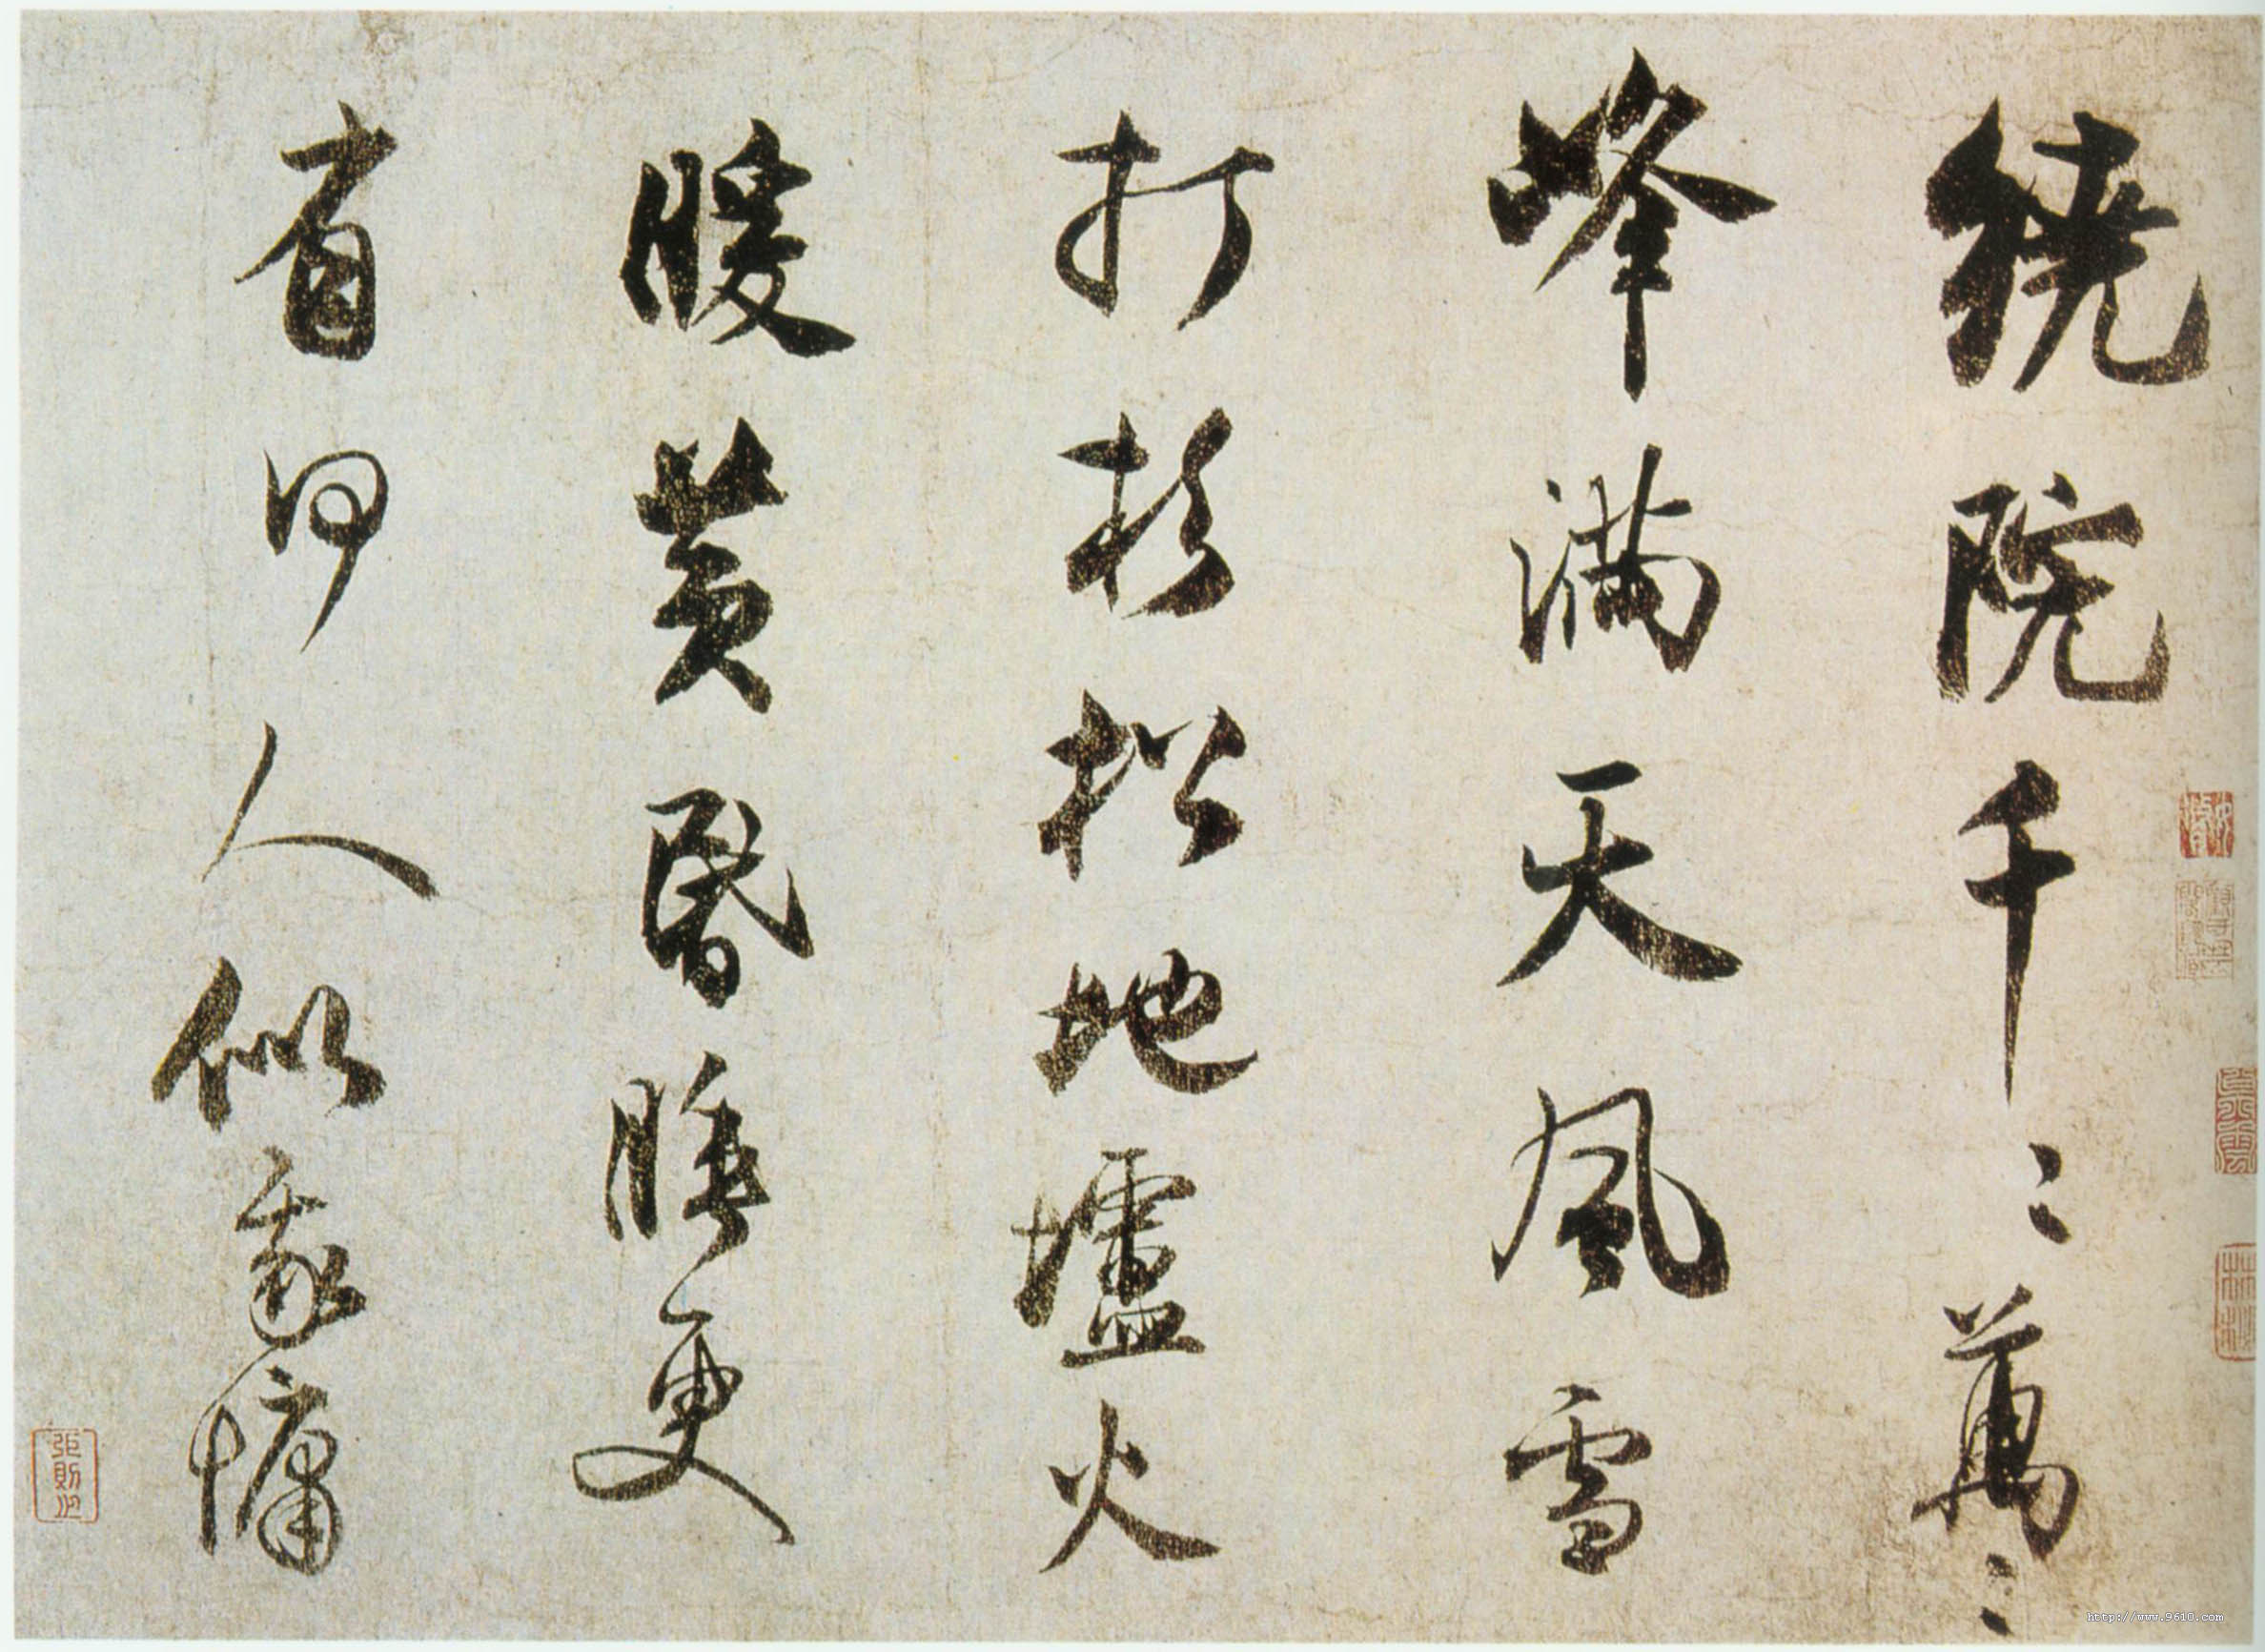 繞院千〻萬〻
峰滿天風雪
打杉松地爐火
暖黃昏睡更
有何人似我慵
張則之
http://www.9610.com